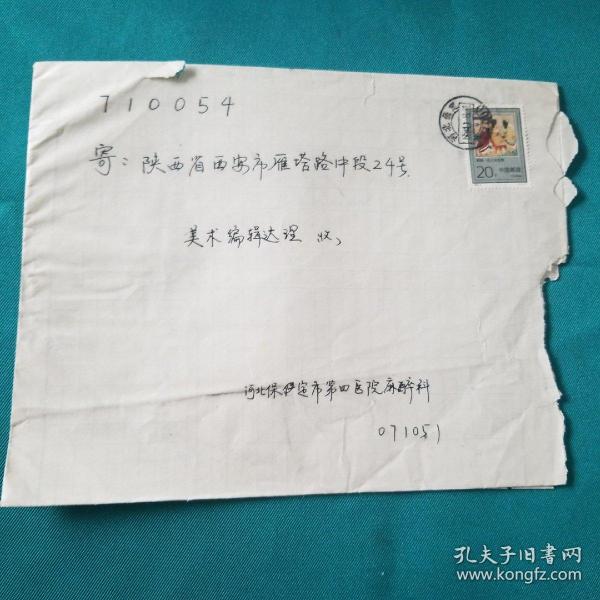 710054
寄：陕西省西安市雁塔路中段24号
美术编辑达理 收
河北保定市第四医院麻醉科
071051
20分
中国邮政
孔夫子旧书网
www.kongfz.com